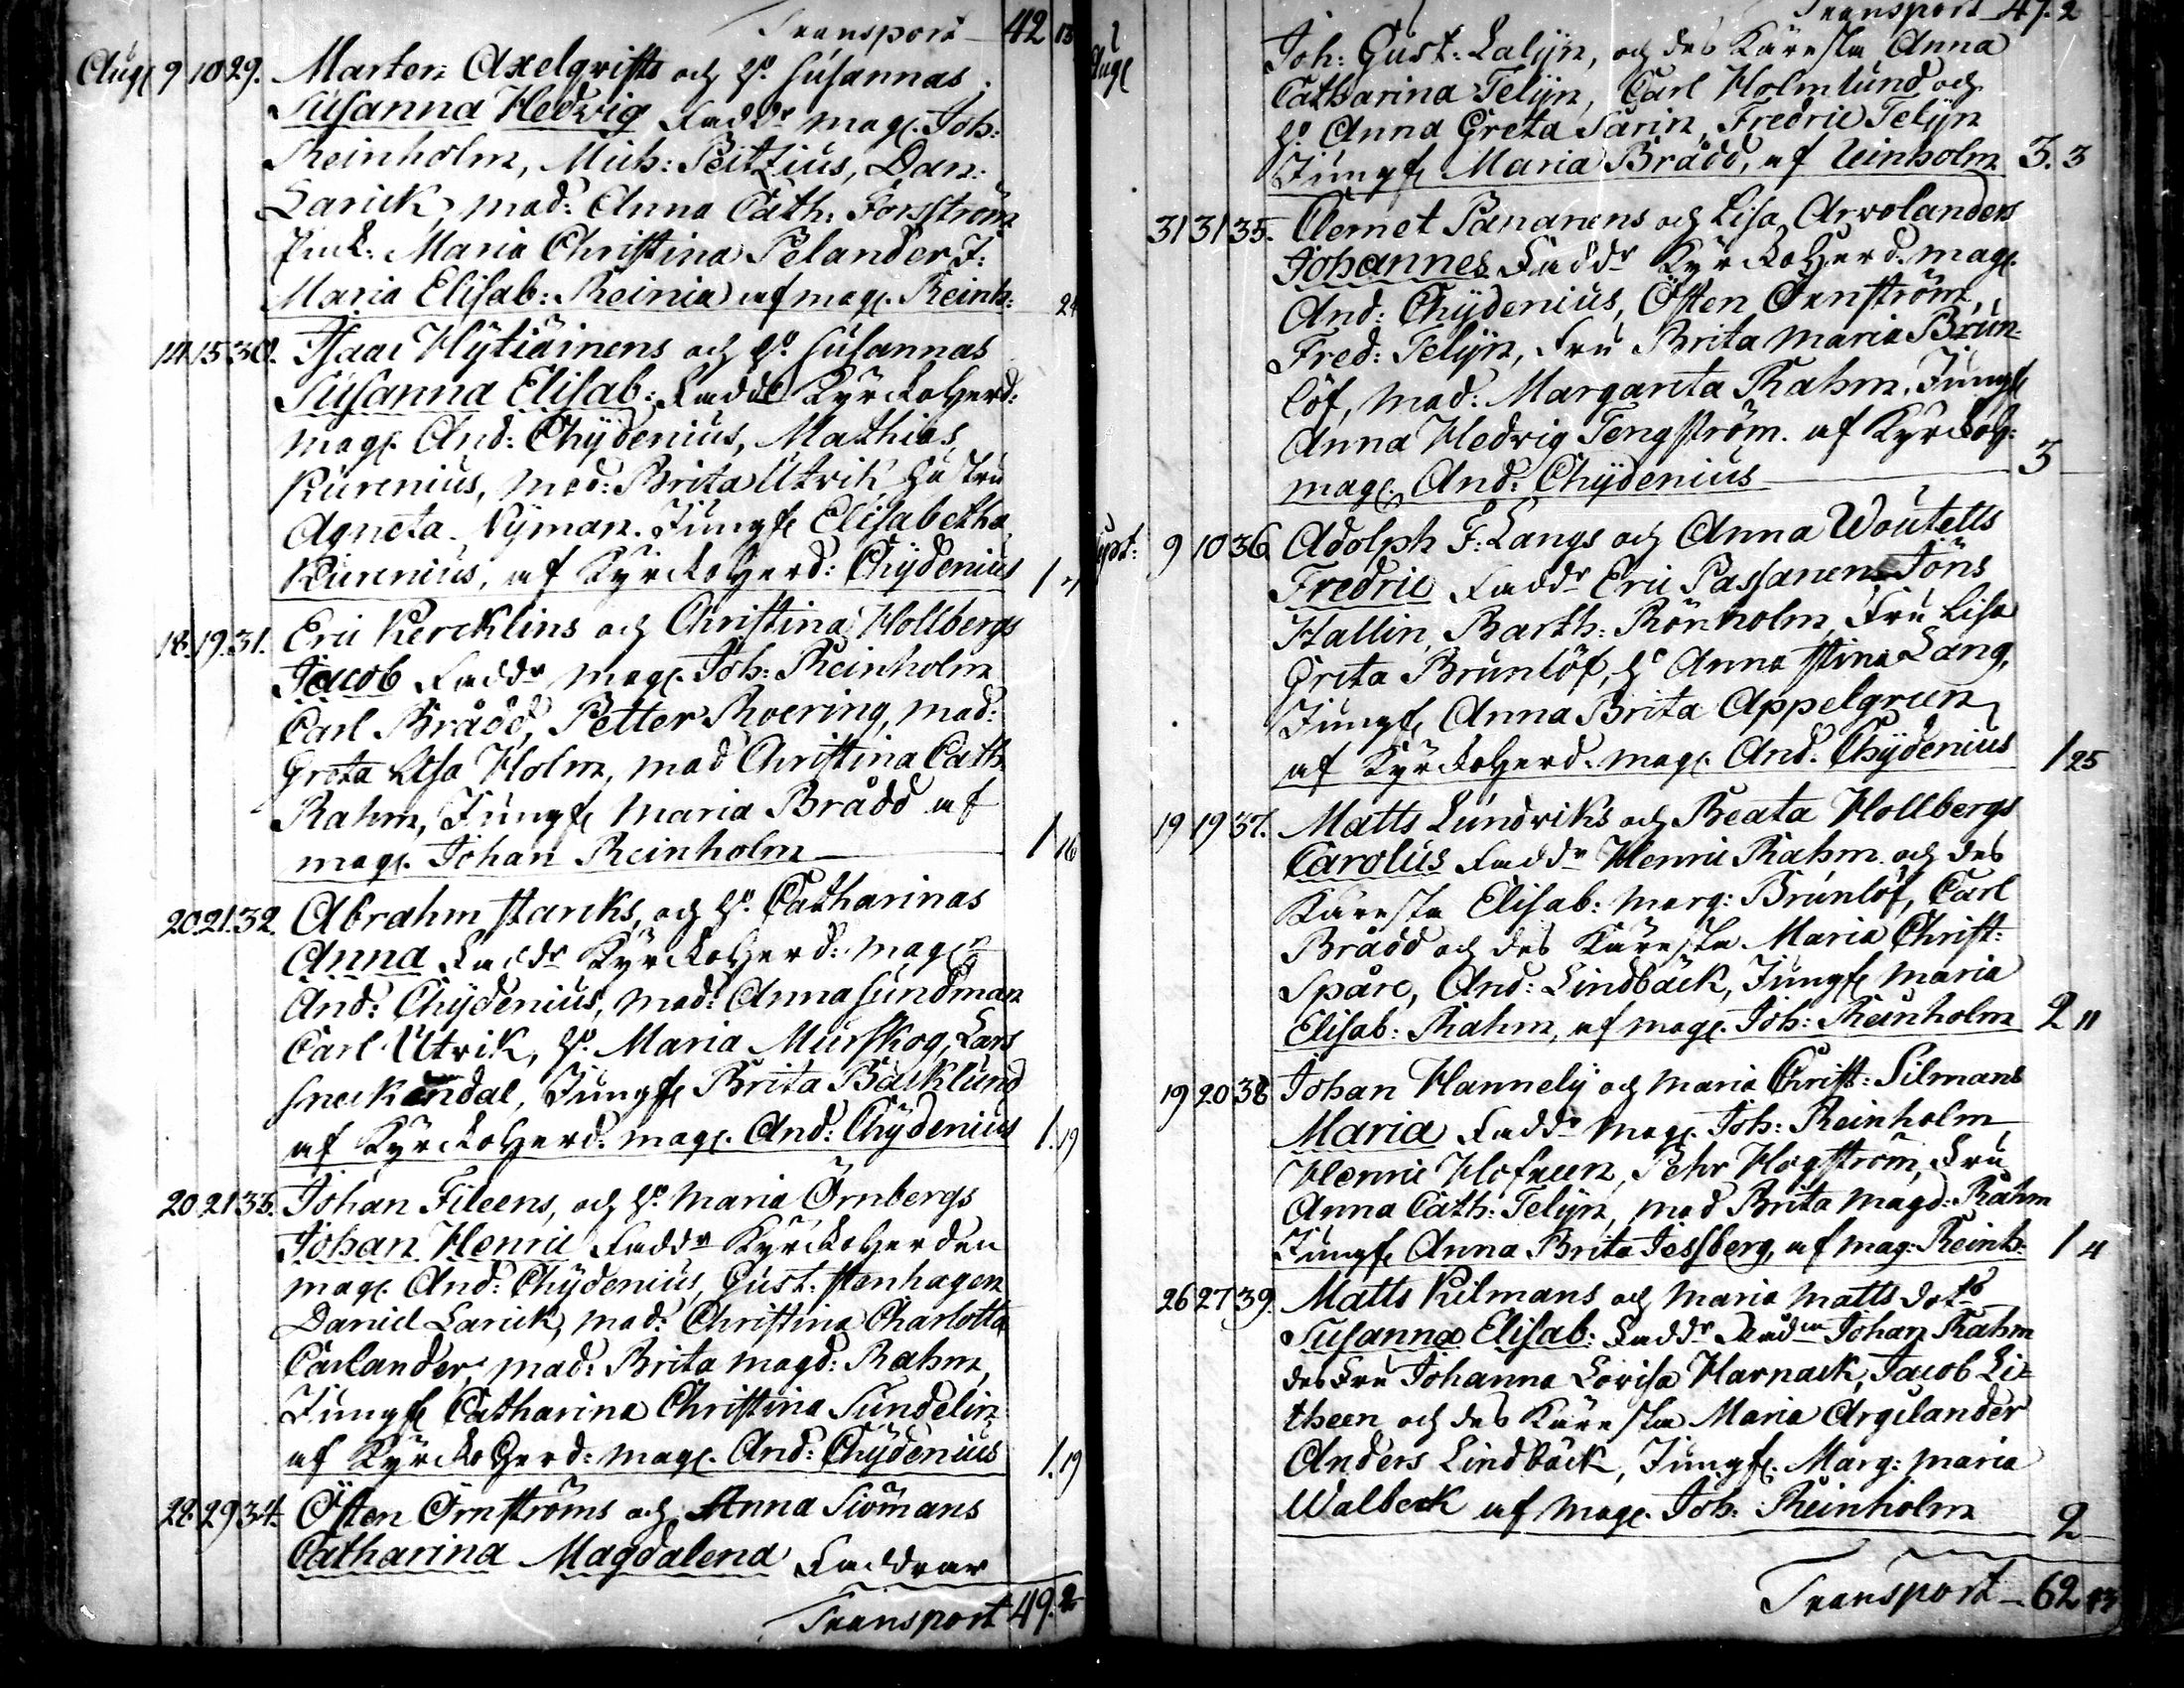 Transport 42 13
Aug 9 10 29. Marten Axelqvists och h: Susannas
Susanna Hedvig Faddr mag. Joh:
Reinholm, Mich: Peitzius, Dan:
Larick, mad: Anna Cath: Forsström
Maria Christina Pelander J:
Maria Elisab: Reinia af mag. Reinh: 24
14 15 30. Isaac Hytiäinens och h: Susannas
Susanna Elisab: Faddr Kyrckoherd:
mag. And: Chydenius, Mathias
Kurenius, mad: Brita Utrik hustru
Agneta Nyman. Jungf Elisabetha
Kurenius, af Kyrckoherd: Chydenius 1
18. 19. 31. Eric Kercklins och Christina Hollbergs
Jacob Faddr mag. Joh: Reinholm
Carl Brådd, Petter Roering, mad:
Greta Lisa Holm, mad Christina Cath
Rahm, Jungf Maria Brådd af
mag. Johan Reinholm 1 16
20 21 32. Abrahm starcks, och h: Catharinas
Anna Faddr Kyrckoherd: mag
And: Chydenius, mad: Anna Sundman
Carl Utrik, h: Maria Murskog, Lars
Sneckendal, Jungf Brita Bäcklund
af Kyrckoherd: mag. And: Chydenius 1. 19
20 21 33. Johan Fileens, och h: Maria Örnbergs
Johan Henric Faddr Kyrckoherden
mag. And: Chydenius, Gust: stenhagen
Daniel Larick, mad: Christina Charlotta
Carlander, mad: Brita magd: Rahm,
Jungf Catharina Christina Sundelin
af Kyrckoherd: mag. And: Chydenius 1. 19
29 34. Östen Örnströms och Anna Siömans
Catharina Magdalena Faddrar
Transport 49. 2
Transport 49. 2
Aug
Joh: Gust: Lalijn, och des Käresta Anna
Catharina Telijn, Carl Holmlund och
h: Anna Greta Sarin, Fredric Telijn
Jungf Maria Brådd, af Reinholm 3. 3
31 31 35. Clemet Pananens och Lisa Arvolanders
Johannes Faddr Kyrckoherd. mag.
And: Chydenius, Östen Örnström,
Fred: Telijn, Fru Brita Maria Brun-
löf, mad: Margareta Rahm, Jungf
Anna Hedvig Tengström. af Kyrckoh:
mag. And: Chydenius 3
9 10 36. Adolph F: Langs och Anna Woutells
Fredric Faddr Eric Passanen, Jöns
Hallin, Barth: Rönholm, Fru Lisa
Greta Brunlöf, h: Anna stina Lang,
Jungf Anna Brita Appelgreen
af Kyrckoherd. mag. And. Chydenius 1 25
19 19 37. Matts Lundviks och Beata Hollbergs
Carolus Faddr Henric Rahm. och des
Käresta Elisab: Marg: Brunlöf, Carl
Brådd och des Käresta Maria Christ:
Spåre, And: Lindbäck, Jungf Maria
Elisab: Rahm, af mag. Joh: Reinholm 2 11
19 20 38 Johan Hannely och Maria Christ: Silmans
Maria Faddr Mag. Joh: Reinholm
Henric Hofreen, Pehr Högström, Fru
Anna Cath: Telijn, mad Brita Magd: Rahm
Jungf Anna Brita Jessberg, af mag: Reinh: 1 4
26 27 39. Matts Kilmans och Maria Matts dotrs
Susanna Elisab: Faddr Rådm Johan Rahm
des Fru Johanna Lovisa Harnack, Jacob Li-
theen och des Käresta Maria Argilander
Anders Lindbäck, Jungf. Marg: Maria
Walbeck af Mag. Joh: Reinholm 2
Transport 62 13